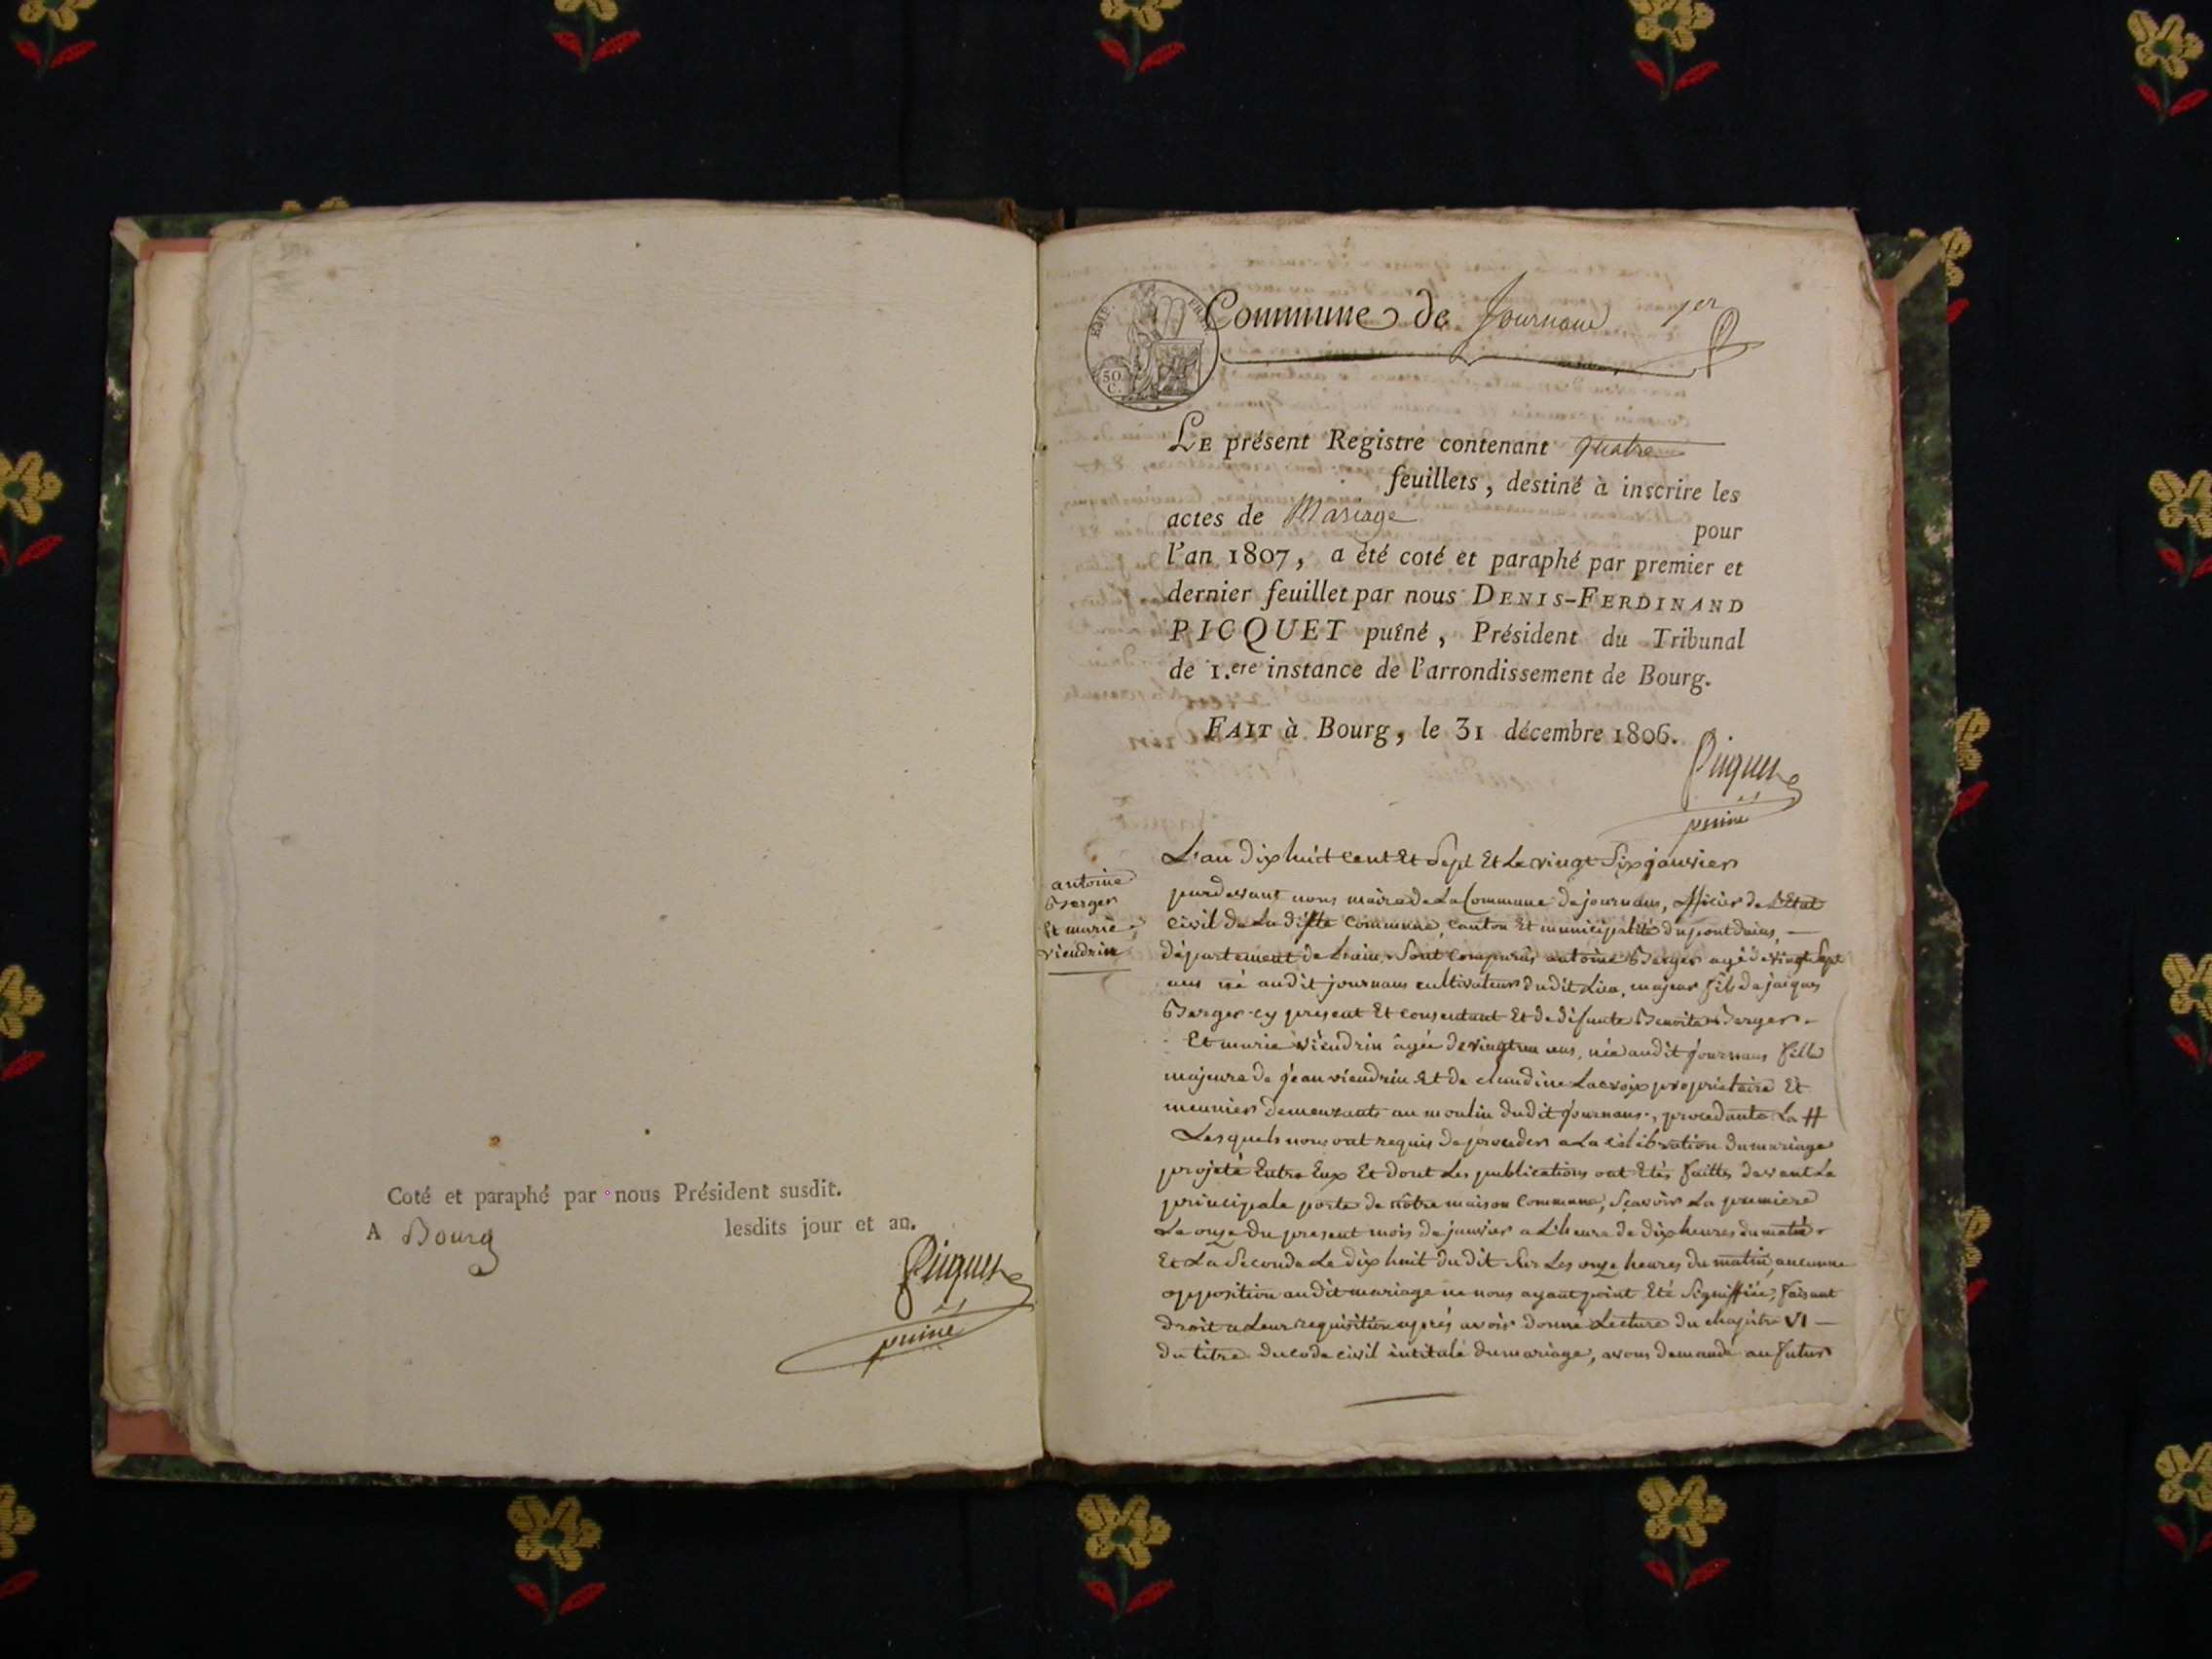 Coté et paraphé par nous Président susdit.
A Bourg lesdits jour et an.
Picquet
puiné
EMP. FRAN.
50
C.
Commune de Journans 1er
LE présent Registre contenant quatre
feuillets, destiné à inscrire les
actes de Mariage pour
l'an 1807, a été coté et paraphé par premier et
dernier feuillet par nous DENIS-FERDINAND
PICQUET puîné, Président du Tribunal
de 1.ere instance de l'arrondissement de Bourg.
FAIT à Bourg, le 31 décembre 1806.
Picquet
puiné
antoine
Berger
Et marie
viendrin
L'an Dix huict cent Et Sept Et Le vingt Six janvier
pardevant nous maire de La Commune de journans, officier de L'Etat
civil de La ditte Commune, canton Et municipalité du pont dains,
département de Lain, Sont comparus antoine Berger agé de vingt Sept
ans né audit journans cultivateur dudit Lieu, majeur fils de jacques
Berger cy present Et consentant Et de défunte Benoite Berger.
Et marie viendrin âgée de vingt un ans, née audit journans fille
majeure de jean viendrin Et de claudine Lacroix propriétaire Et
meunier demeurants au moulin dudit journans, procedante La #
Lesquels nous ont requis de procéder a La célébration du mariage
projeté Entre Eux Et dont Les publications ont Etés faittes devant La
principale porte de nôtre maison Commune, Sçavoir La premiere
Le onze du present mois de janvier a L'heure de dix heures du matin
Et La Seconde Le dix huit dudit Sur Les onze heures du matin, aucunne
opposition audit mariage ne nous ayant point Eté Signiffiée, faisant
droit a Leur requisition aprés avoir donné Lecture du chapitre VI
du titre du code civil intitulé du mariage, avons demandé au futur